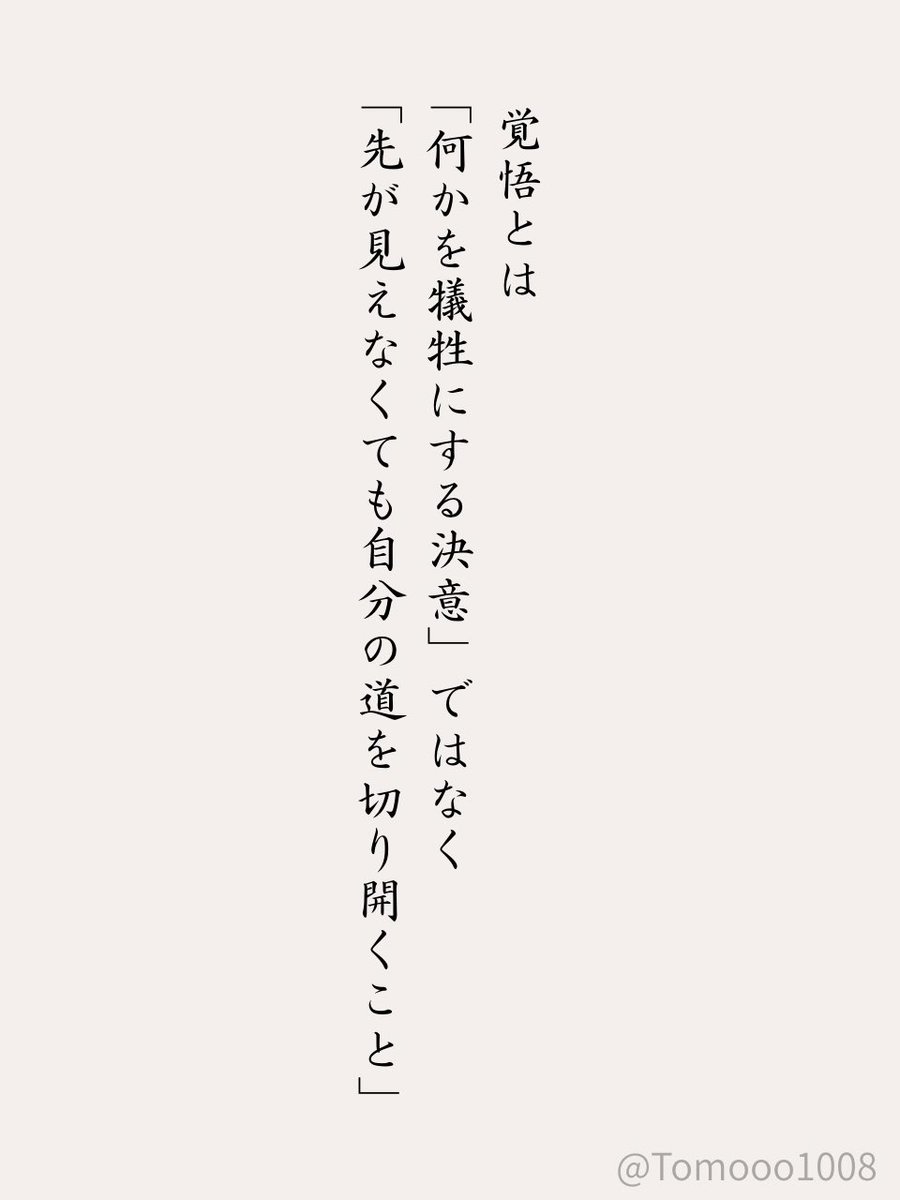 覚悟とは
「何かを犠牲にする決意」ではなく
「先が見えなくても自分の道を切り開くこと」
@Tomooo1008